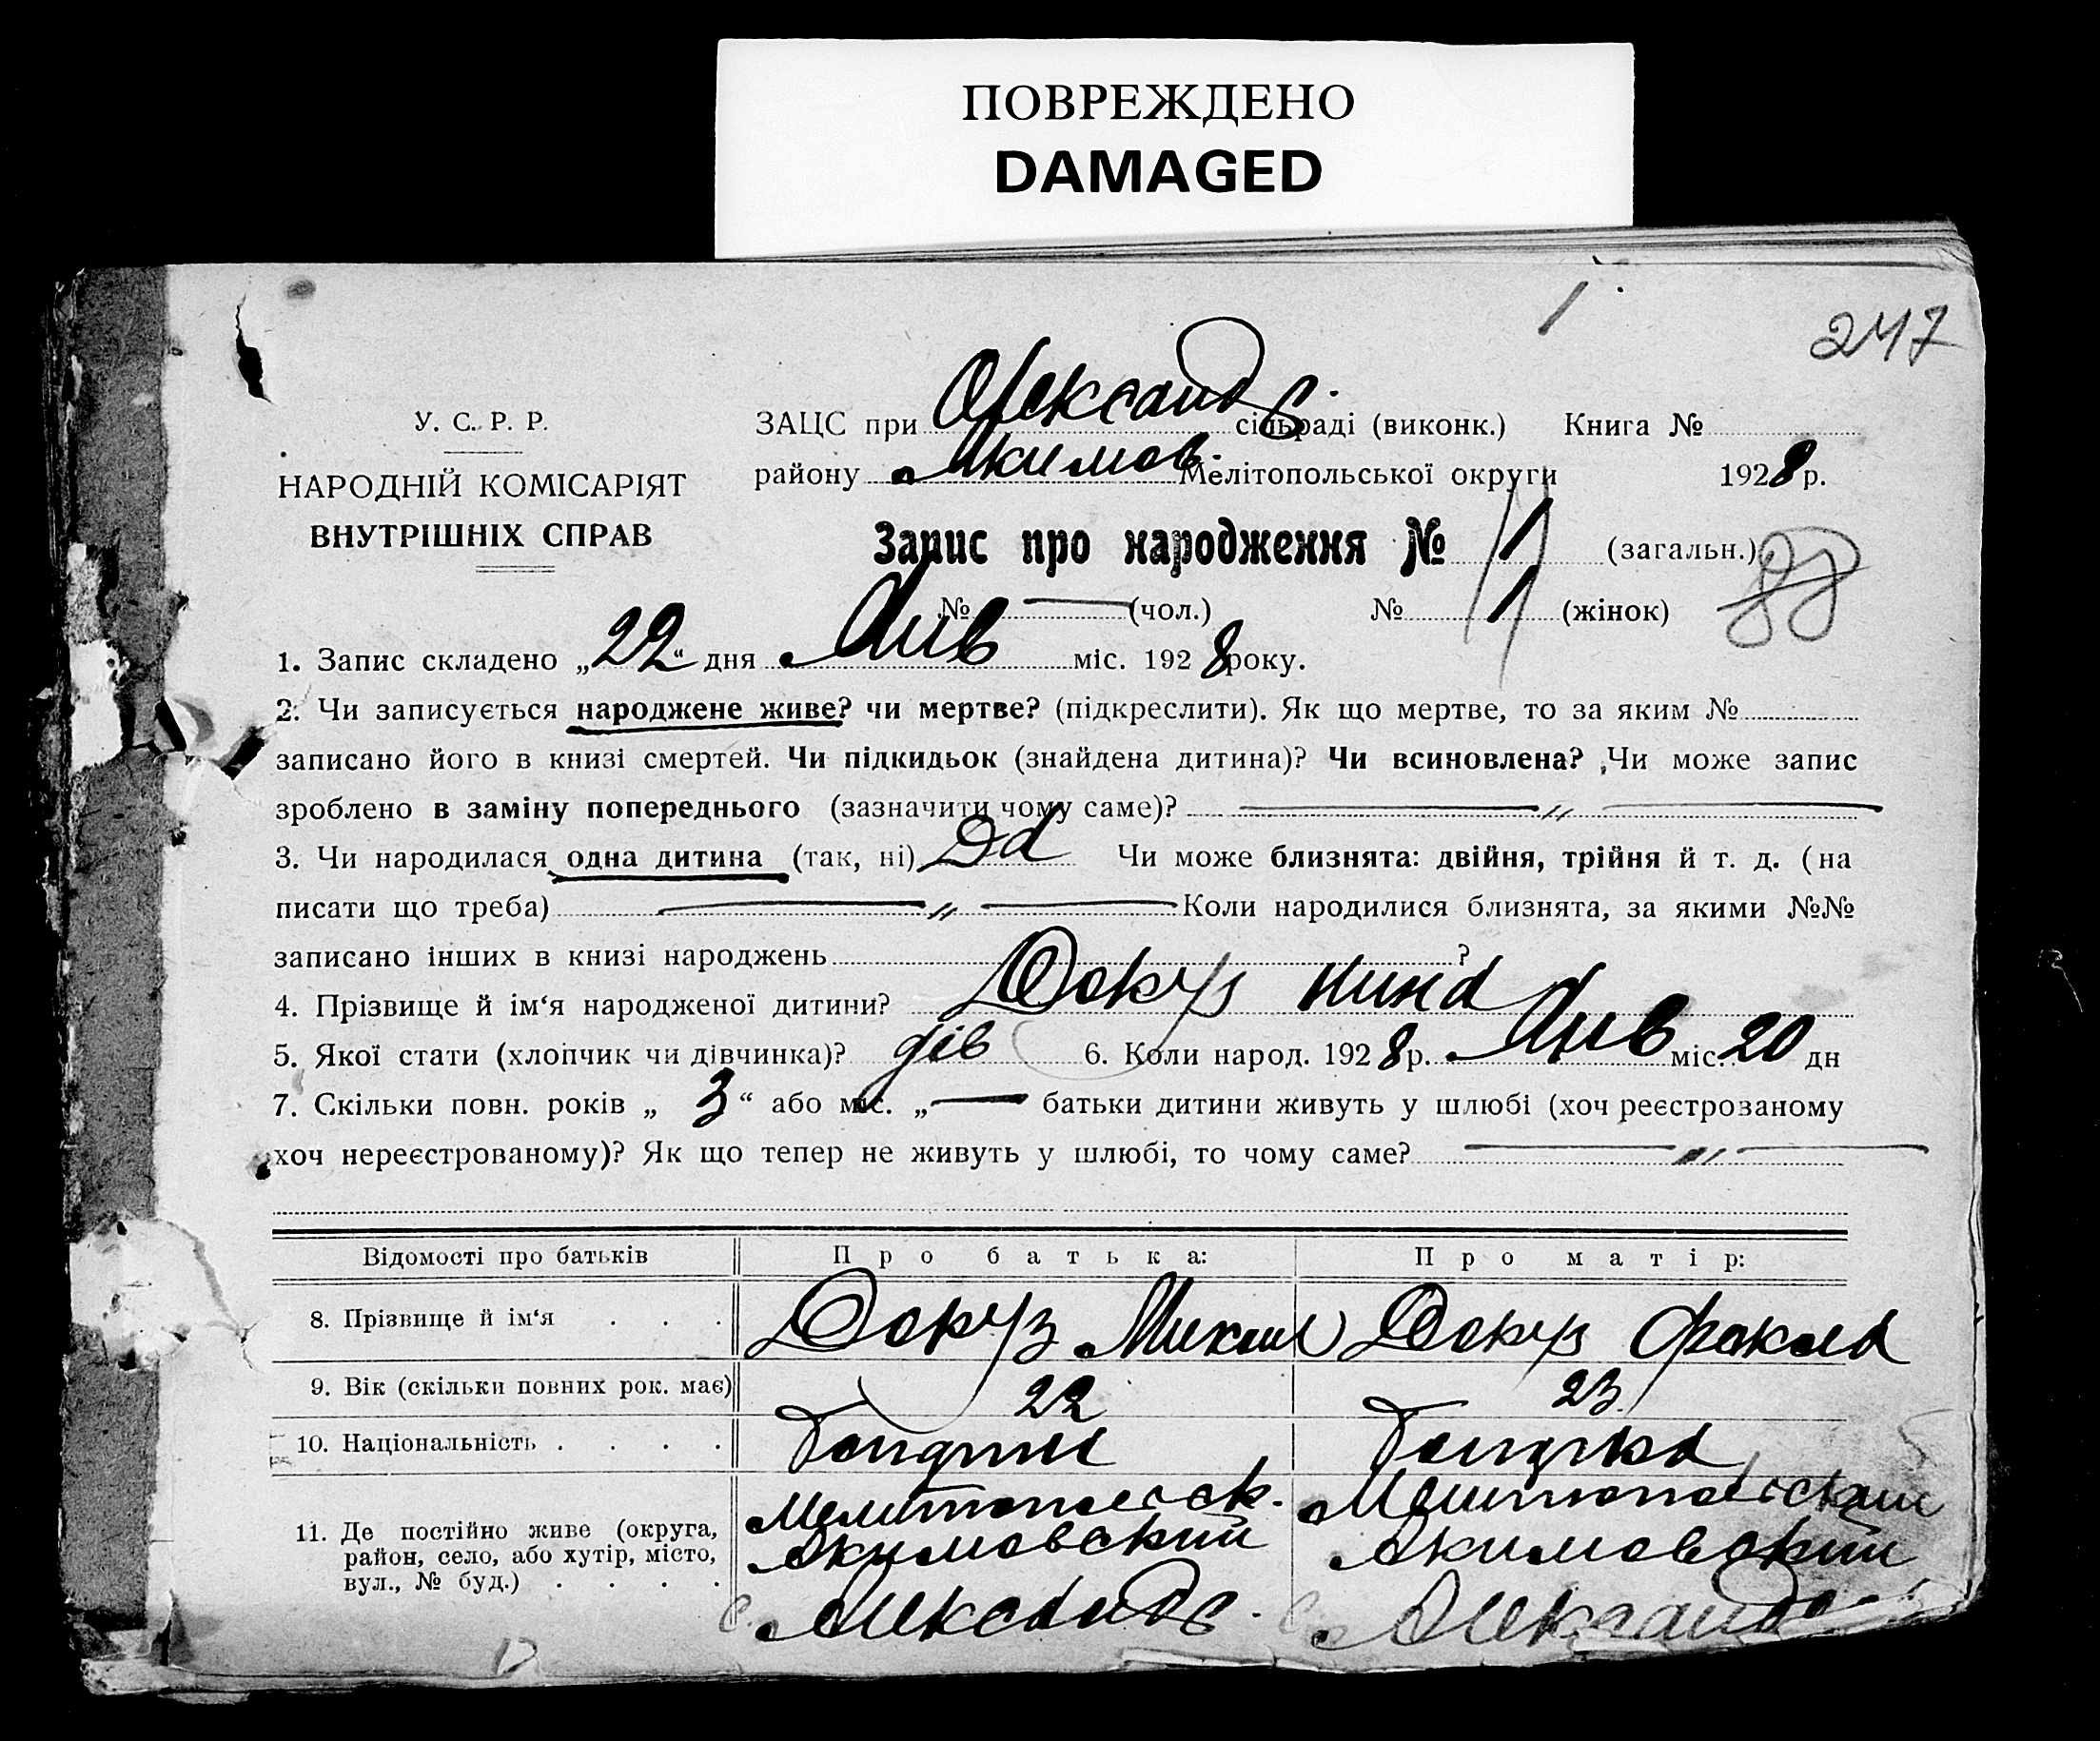 ПОВРЕЖДЕНО
DAMAGED
1
247
У. С. Р. Р.
НАРОДНІЙ КОМІСАРІЯТ
ВНУТРІШНІХ СПРАВ
ЗАЦС при Олександр. сільраді (виконк.) Книга №
району Якимов. Мелітопольської округи 1928 р.
Запис про народження № 1 (загальн.)
№ — (чол.) № 1 (жінок)
1. Запис складено „22“ дня Янв міс. 1928 року.
2. Чи записується народжене живе? чи мертве? (підкреслити). Як що мертве, то за яким №
записано його в книзі смертей. Чи підкидьок (знайдена дитина)? Чи всиновлена? Чи може запис
зроблено в заміну попереднього (зазначити чому саме)? — „ —
3. Чи народилася одна дитина (так, ні) Да Чи може близнята: двійня, трійня й т. д. (на
писати що треба) — „ — Коли народилися близнята, за якими №№
записано інших в книзі народжень ?
4. Прізвище й ім‘я народженої дитини? Докуз Нина
5. Якої стати (хлопчик чи дівчинка)? дів 6. Коли народ. 1928 р. Янв міс. 20 дн
7. Скільки повн. років „ 3 “ або міс. „ — батьки дитини живуть у шлюбі (хоч реєстрованому
хоч нереєстрованому)? Як що тепер не живуть у шлюбі, то чому саме? — „ —
Відомості про батьків Про батька: Про матір:
8. Прізвище й ім‘я . . . Докуз Михаил Докуз Фекла
9. Вік (скільки повних рок. має) 22 23
10. Національність . . . .
11. Де постійно живе (округа,
район, село, або хутір, місто,
вул., № буд.) . . . .
Мелитопольск. Мелитопольский
Акимовский Акимовский
Александр. Александр